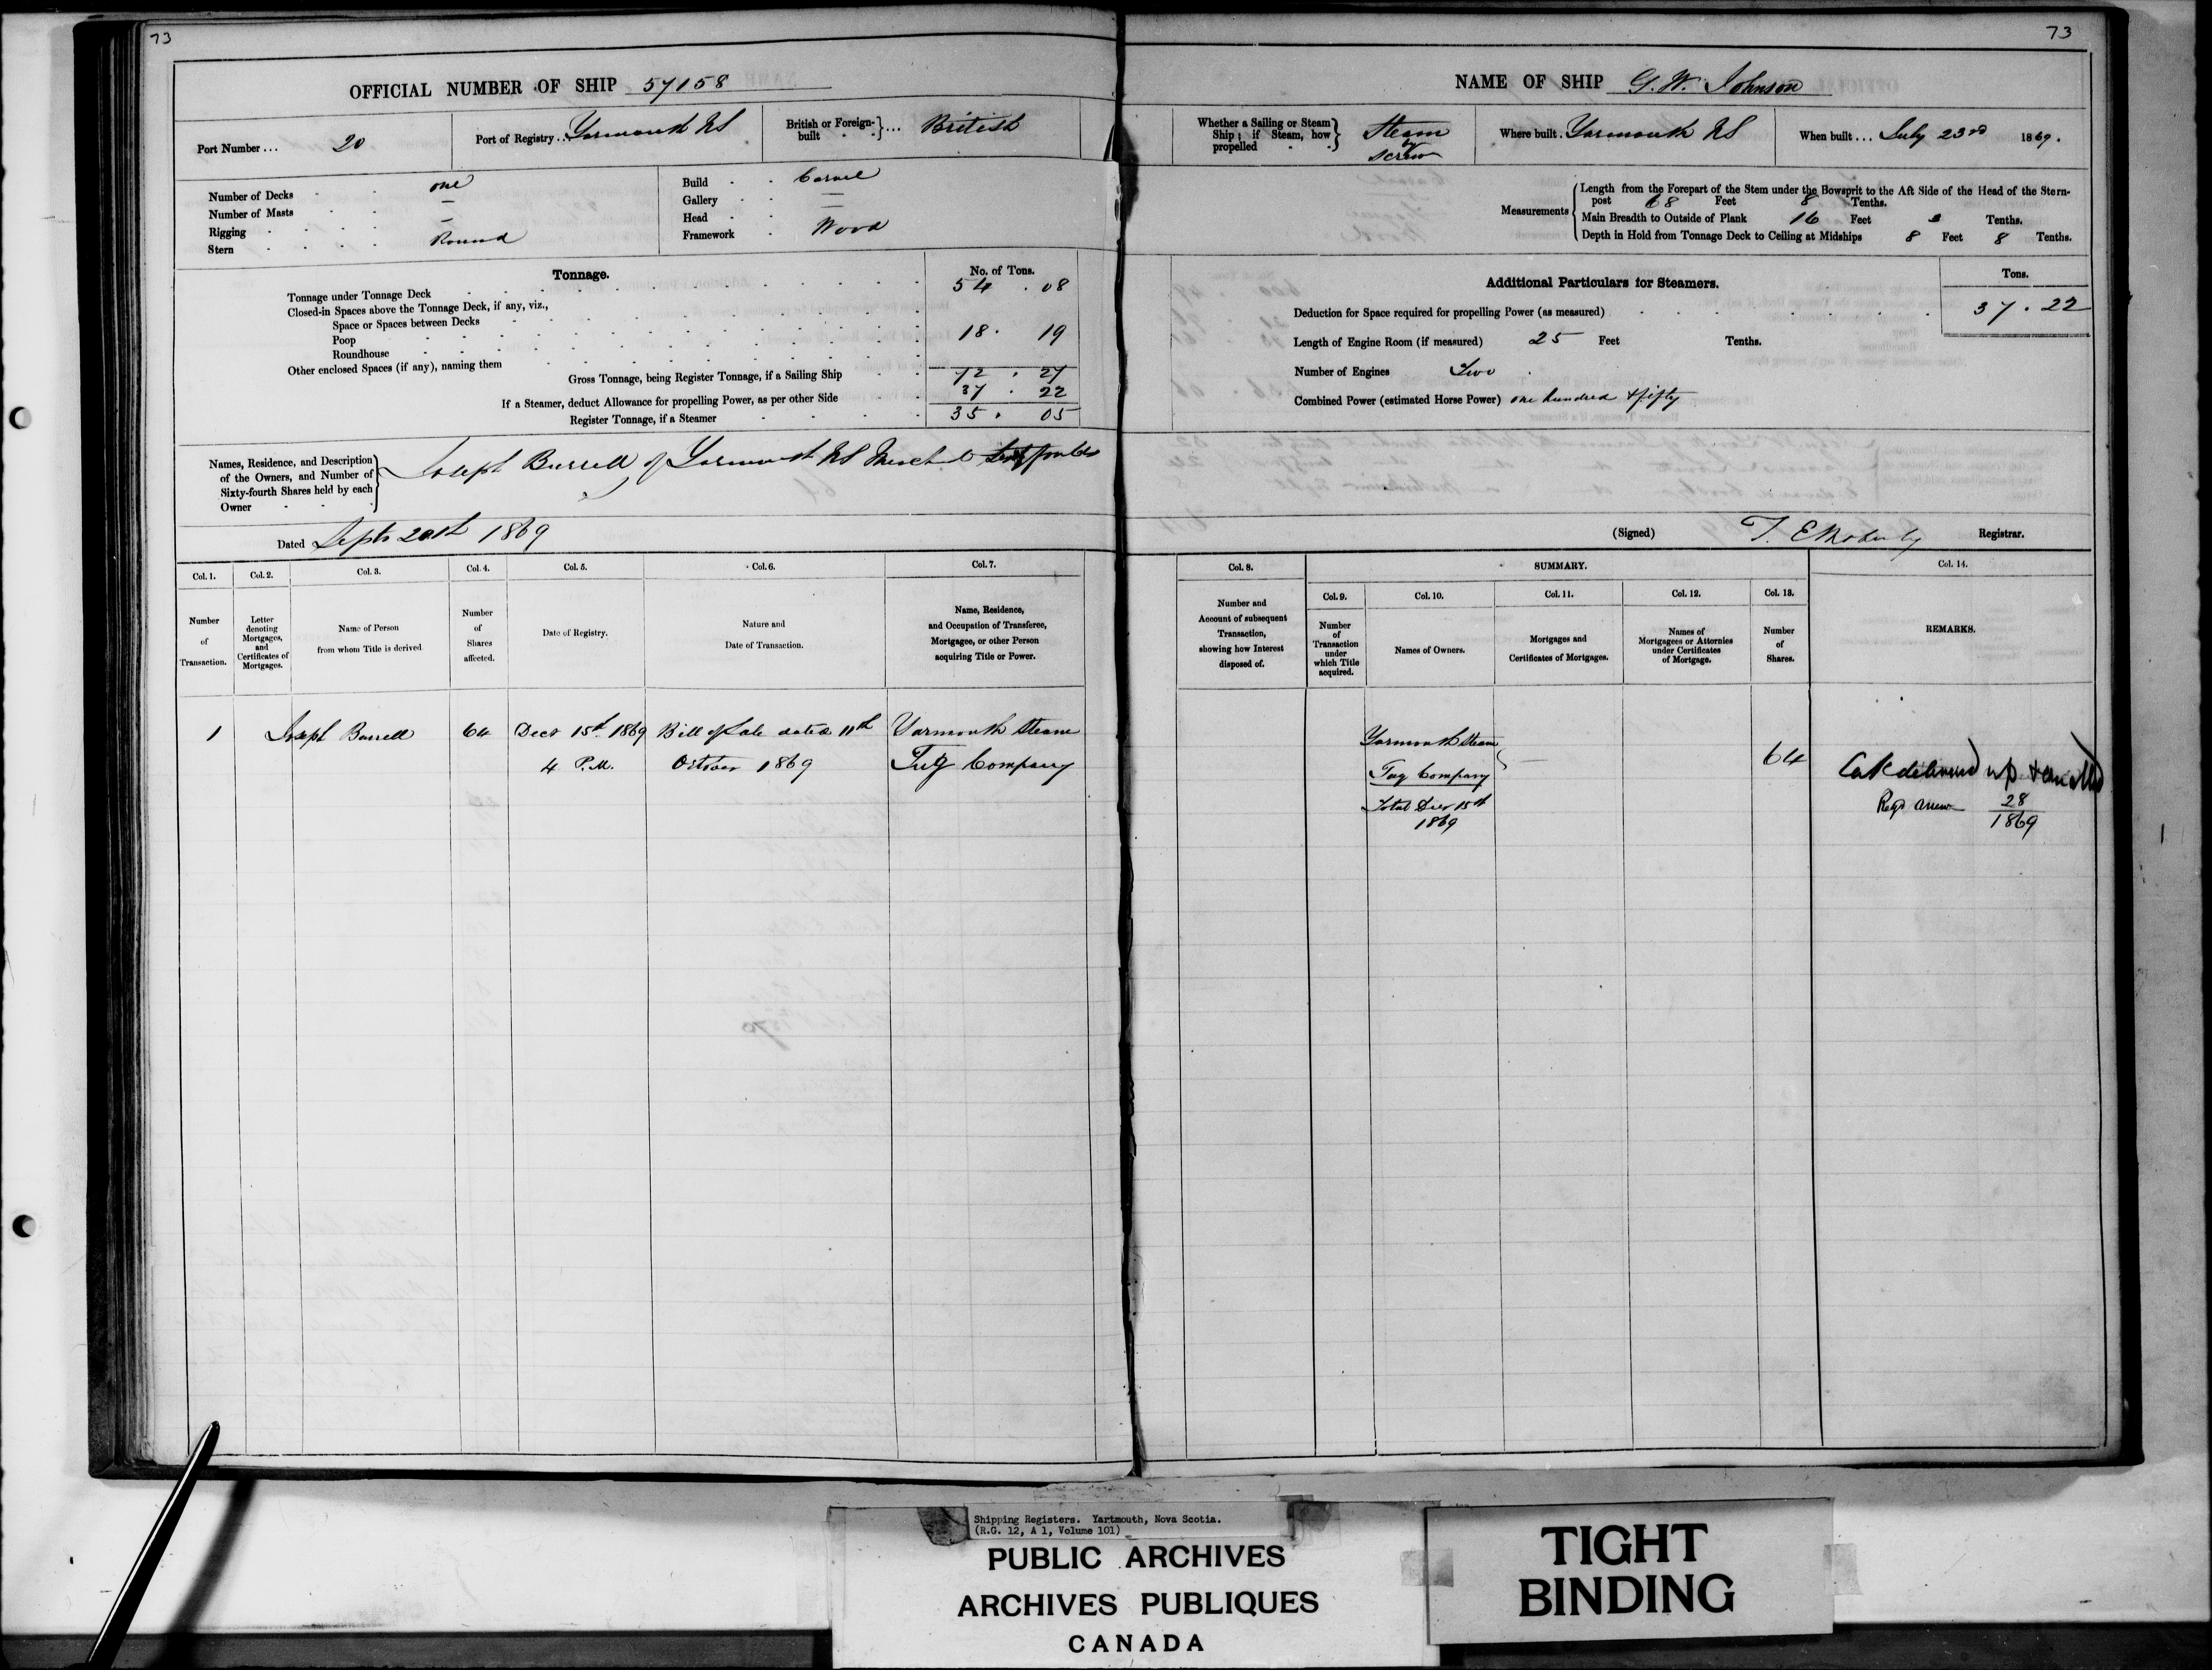 73
OFFICIAL NUMBER OF SHIP 57158
Port Number... 20
Port of Registry... Yarmouth NS
British or Foreign-built } ... British
Number of Decks one
Number of Masts —
Rigging —
Stern Round
Build Carvel
Gallery —
Head —
Framework Wood
Tonnage.
No. of Tons.
Tonnage under Tonnage Deck 54 . 08
Closed-in Spaces above the Tonnage Deck, if any, viz.,
Space or Spaces between Decks
Poop 18 . 19
Roundhouse
Other enclosed Spaces (if any), naming them
Gross Tonnage, being Register Tonnage, if a Sailing Ship 72 . 27
If a Steamer, deduct Allowance for propelling Power, as per other Side 37 . 22
Register Tonnage, if a Steamer 35 . 05
Names, Residence, and Description of the Owners, and Number of Sixty-fourth Shares held by each Owner
Joseph Burrell of Yarmouth NS Mercht
64
Dated Septr 20th 1869
Col. 1. Col. 2. Col. 3. Col. 4. Col. 5. Col. 6. Col. 7.
Number of Transaction.
Letter denoting Mortgages, and Certificates of Mortgages.
Name of Person from whom Title is derived
Number of Shares affected.
Date of Registry.
Nature and Date of Transaction.
Name, Residence, and Occupation of Transferee, Mortgagee, or other Person acquiring Title or Power.
1 Joseph Burrell 64 Decr 15th 1869 Bill of Sale dated 11th Yarmouth Steam
4 P.M. October 1869 Tug Company
73
NAME OF SHIP G. W. Johnson
Whether a Sailing or Steam Ship; if Steam, how propelled } Steam by Screw
Where built . Yarmouth NS
When built ... July 23rd 1869.
Measurements
Length from the Forepart of the Stem under the Bowsprit to the Aft Side of the Head of the Stern-
post 68 Feet 8 Tenths.
Main Breadth to Outside of Plank 16 Feet 2 Tenths.
Depth in Hold from Tonnage Deck to Ceiling at Midships 8 Feet 8 Tenths.
Additional Particulars for Steamers.
Tons.
Deduction for Space required for propelling Power (as measured) 37 . 22
Length of Engine Room (if measured) 25 Feet Tenths.
Number of Engines Two
Combined Power (estimated Horse Power) one hundred & fifty
(Signed) Registrar.
Col. 8. SUMMARY. Col. 14.
Col. 9. Col. 10. Col. 11. Col. 12. Col. 13.
Number and Account of subsequent Transaction, showing how Interest disposed of.
Number of Transaction under which Title acquired.
Names of Owners.
Mortgages and Certificates of Mortgages.
Names of Mortgagees or Attornies under Certificates of Mortgage.
Number of Shares.
REMARKS.
Yarmouth Steam
Tug Company — 64
Total Decr 15th
1869
delivered up &
Regd anew 28
1869
Shipping Registers. Yartmouth, Nova Scotia.
(R.G. 12, A 1, Volume 101)
PUBLIC ARCHIVES
ARCHIVES PUBLIQUES
CANADA
TIGHT
BINDING